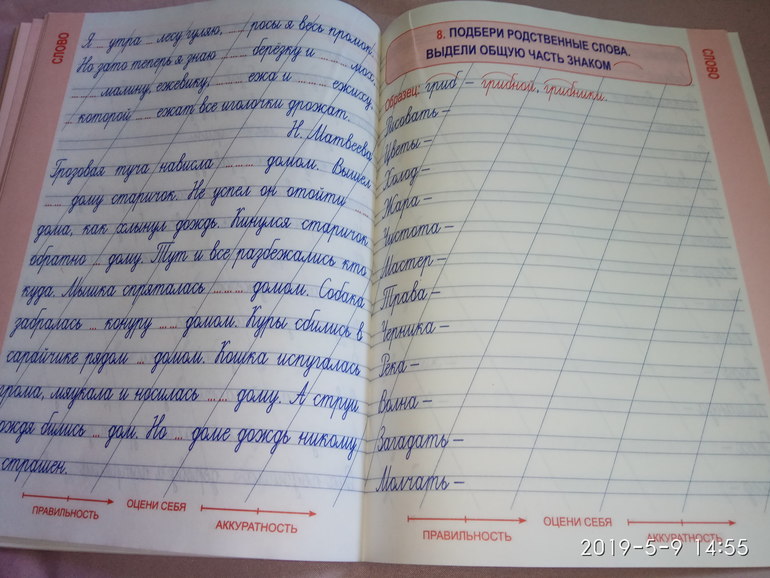 СЛОВО
Я ... утра ... лесу гуляю, ... росы я весь промок.
Но зато теперь я знаю ... берёзку и ... мох,
... малину, ежевику, ... ежа и ... ежиху,
... которой ... ежат все иголочки дрожат.
Н. Матвеева
Грозовая туча нависла ... ... домом. Вышел
... дому старичок. Не успел он отойти ...
дома, как хлынул дождь. Кинулся старичок
обратно ... дому. Тут и все разбежались кто
куда. Мышка спряталась ... ... домом. Собака
забралась ... конуру ... домом. Куры сбились в
сарайчике рядом ... домом. Кошка испугалась
грома, мяукала и носилась ... ... дому. А струи
ождя бились ... дом. Но ... доме дождь никому
страшен.
ПРАВИЛЬНОСТЬ
ОЦЕНИ СЕБЯ
АККУРАТНОСТЬ
СЛОВО
8. ПОДБЕРИ РОДСТВЕННЫЕ СЛОВА.
ВЫДЕЛИ ОБЩУЮ ЧАСТЬ ЗНАКОМ
Образец: гриб – грибной, грибники.
Рисовать –
Цветы –
Холод –
Жара –
Чистота –
Мастер –
Трава –
Черника –
Река –
Волна –
Загадать –
Молчать –
ПРАВИЛЬНОСТЬ
ОЦЕНИ СЕБЯ
АККУРАТНОСТЬ
2019-5-9 14:55